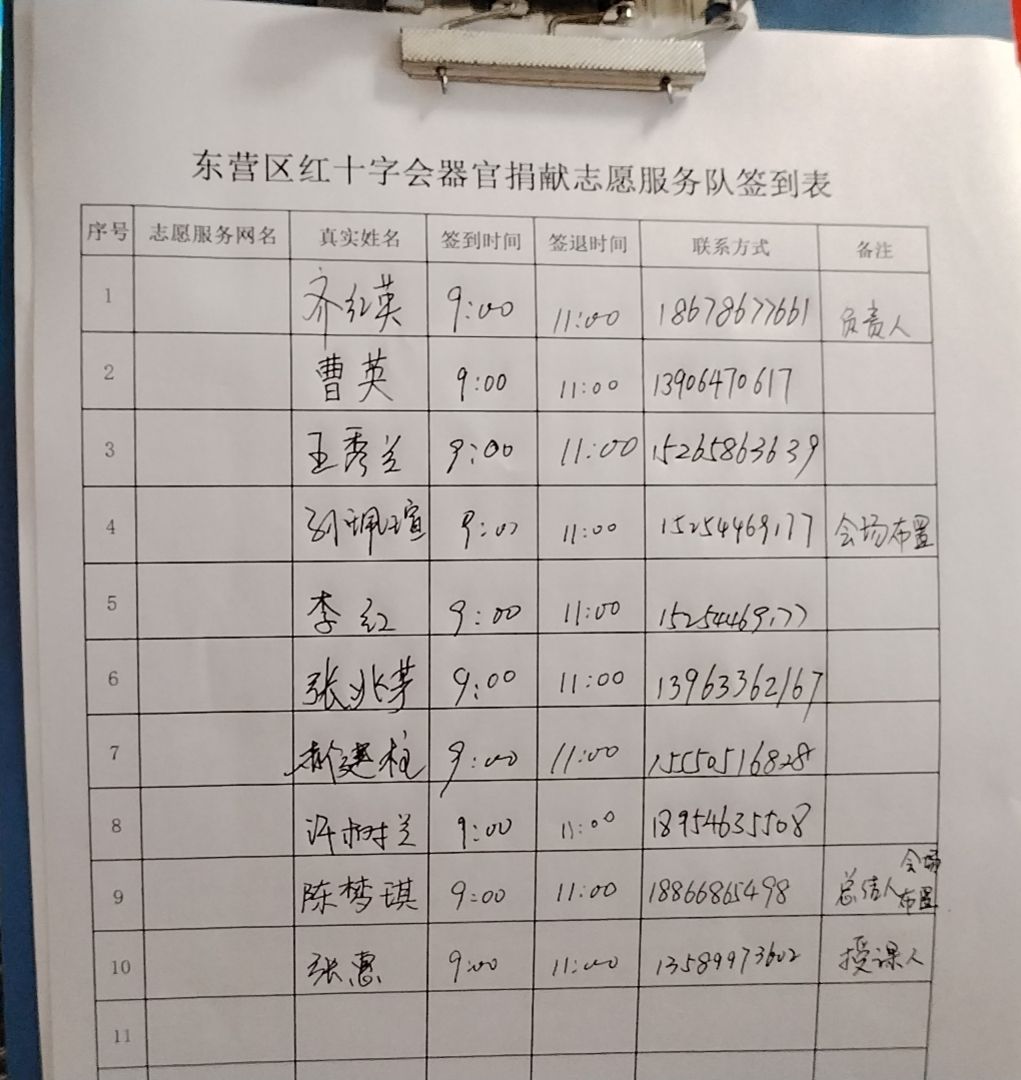 东营区红十字会器官捐献志愿服务队签到表
序号 志愿服务网名 真实姓名 签到时间 签退时间 联系方式 备注
1 齐红英 9:00 11:00 18678677661 负责人
2 曹英 9:00 11:00 13906470617
3 王秀兰 9:00 11:00 15265863639
4 刘珮瑄 9:00 11:00 15254469177 会场布置
5 李红 9:00 11:00 15254469177
6 张兆芽 9:00 11:00 13963362167
7 建柱 9:00 11:00 15550516828
8 许树兰 9:00 11:00 18954635508
9 陈梦琪 9:00 11:00 18866865498 总结人 会场布置
10 张惠 9:00 11:00 13589973602 授课人
11